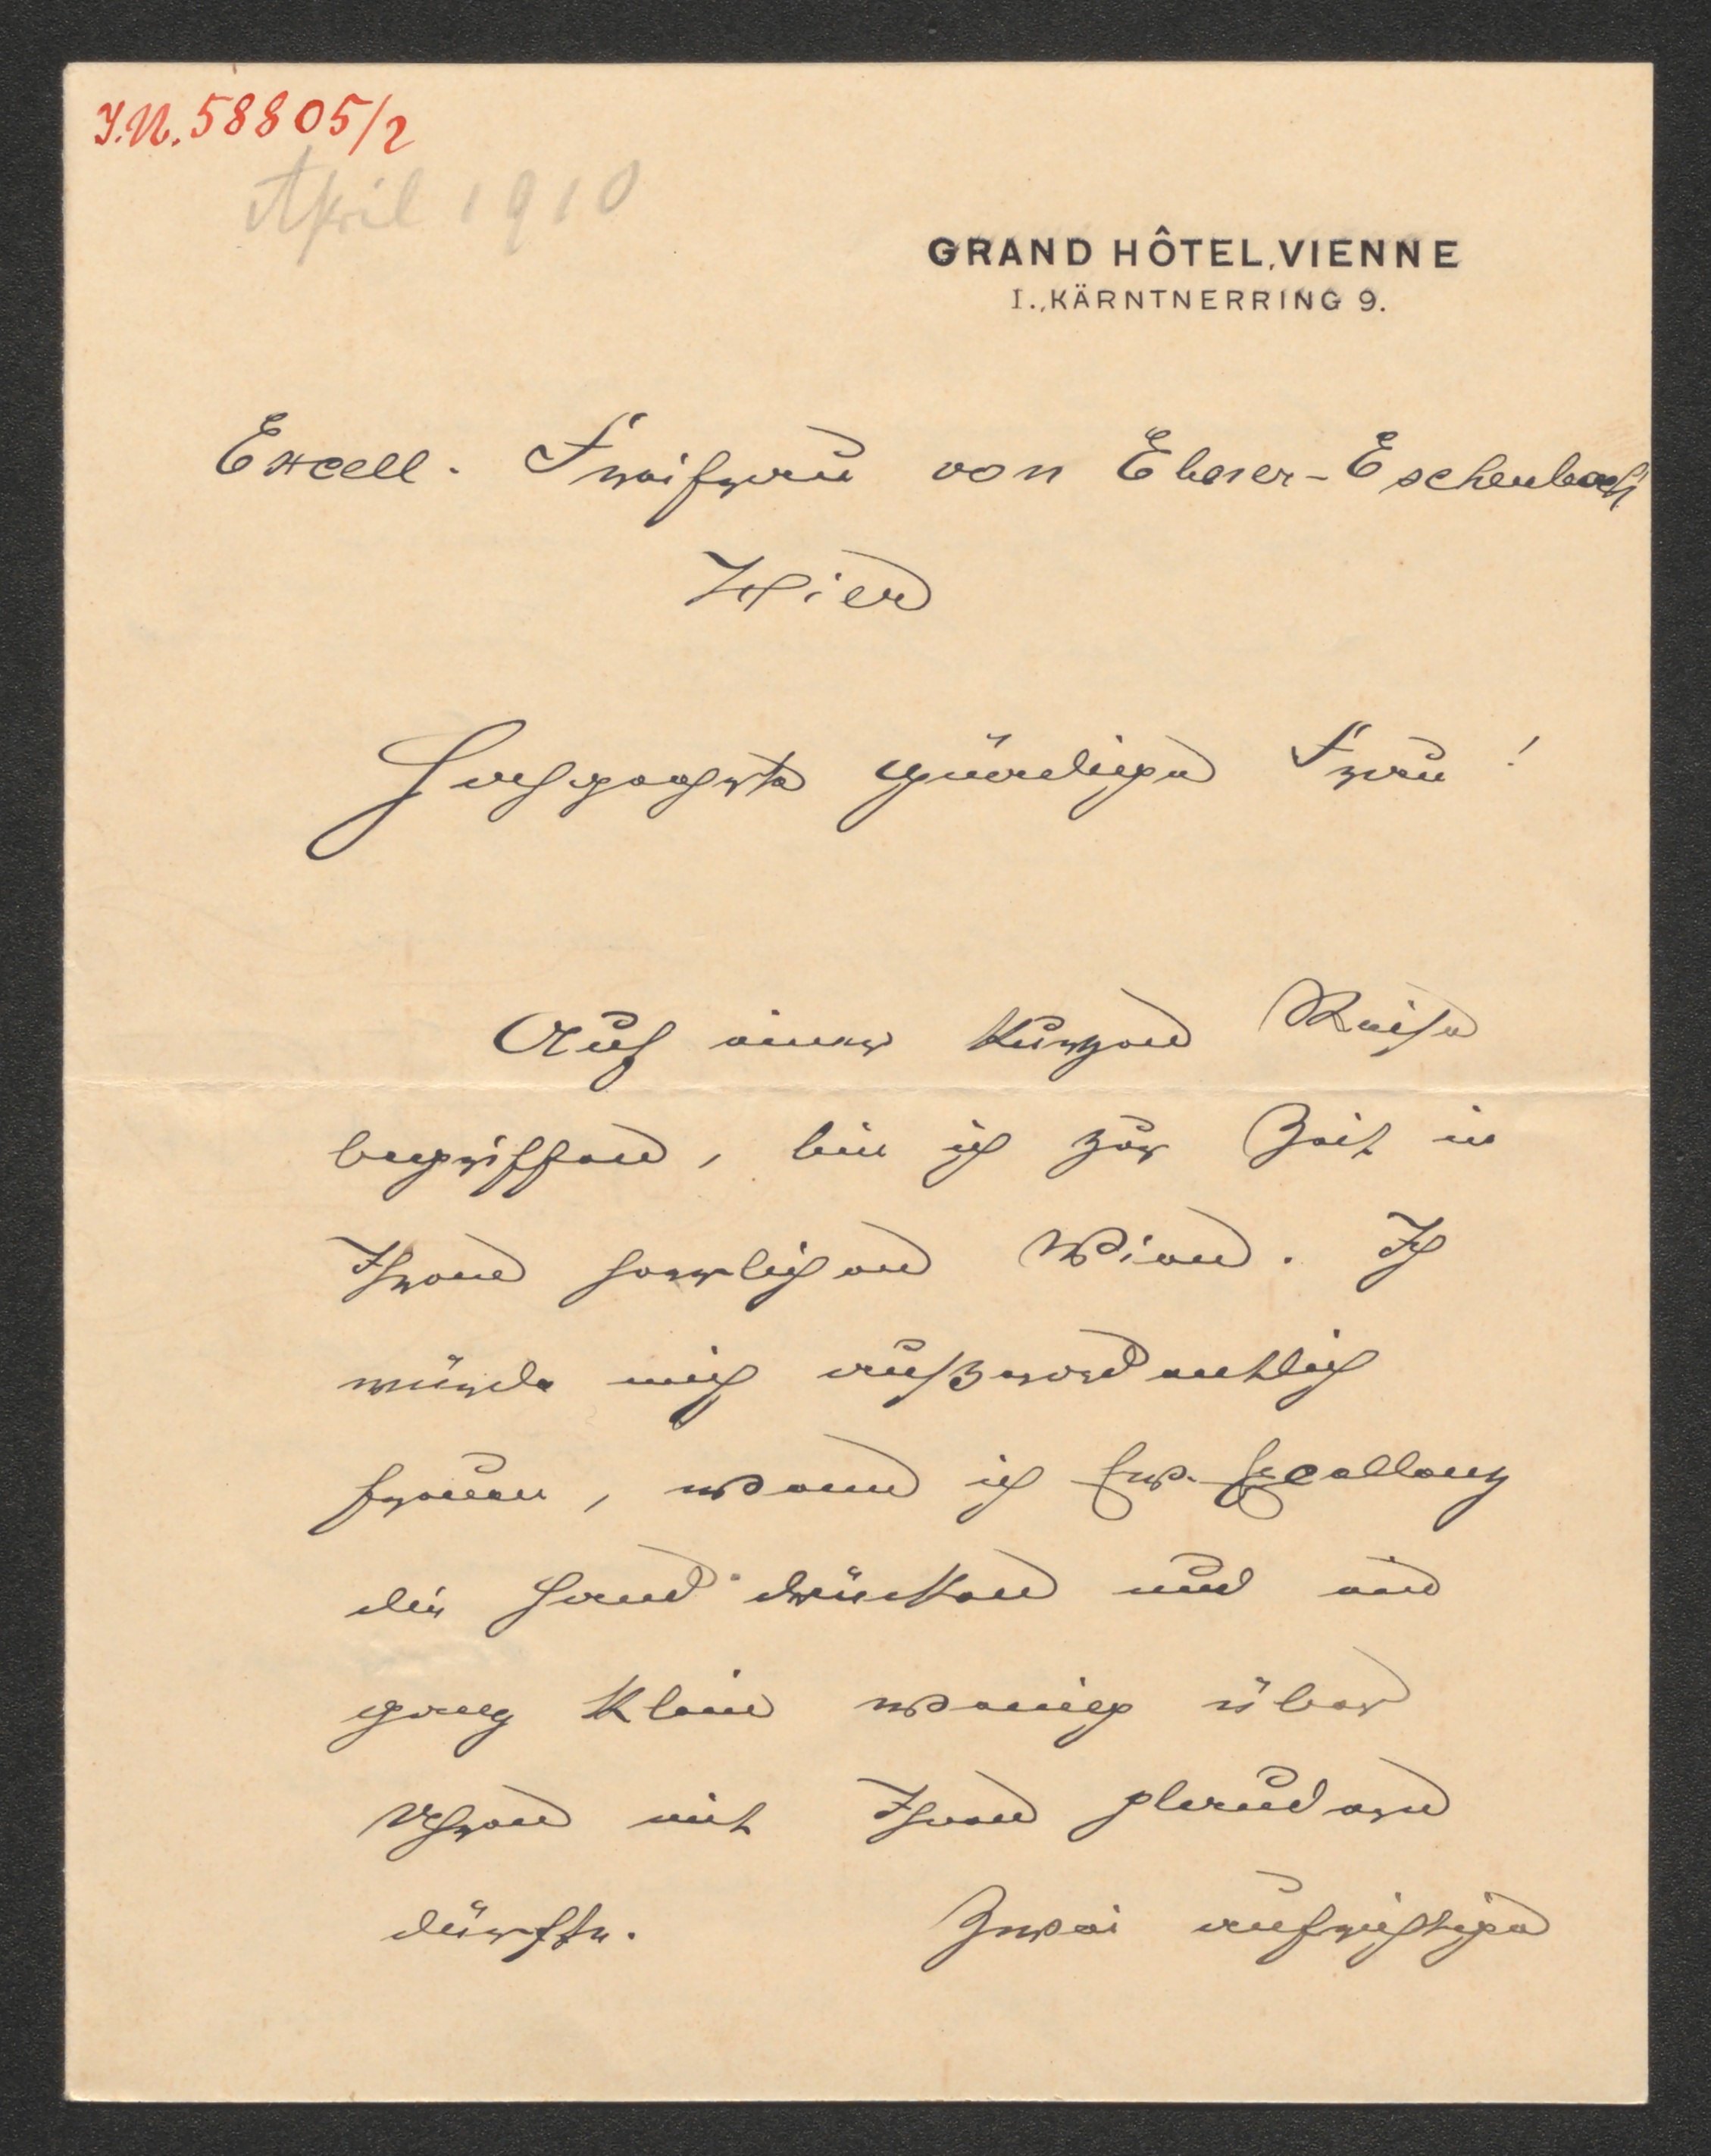 I.N. 58805/2
April 1910
GRAND HÔTEL, VIENNE
I., KÄRNTNERRING 9.
Excell. Freifrau von Ebner-Eschenbach
Wien
Hochgeehrte gnädige Frau!
Auf einer kurzen Reise
begriffen, bin ich zur Zeit in
Ihrem herrlichen Wien. Ich
würde mich außerordentlich
freuen, wenn ich Ew. Excellenz
die Hand drücken und ein
ganz klein wenig über
mit Ihnen plaudern
dürfte. Zwei aufrichtige